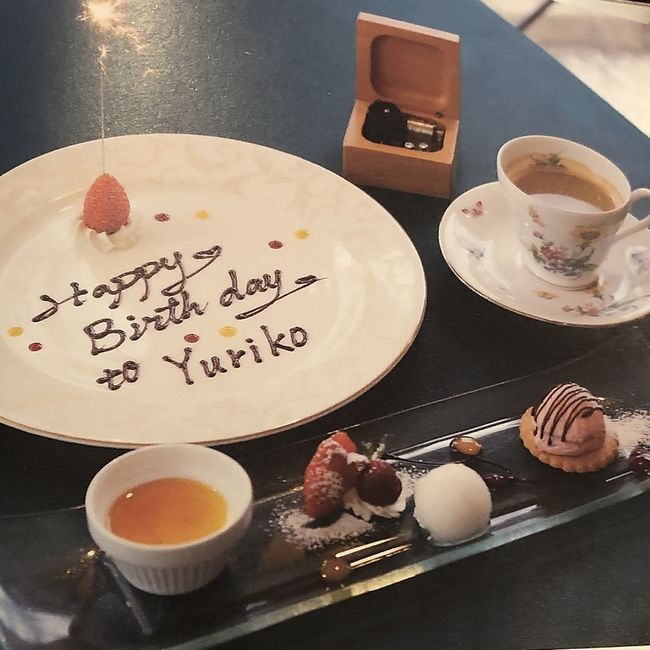 Happy
Birth day
to Yuriko